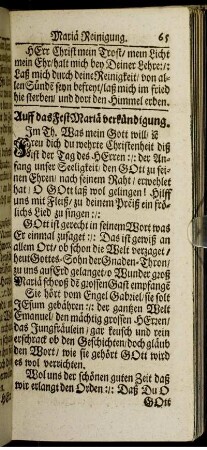 Mariä Reinigung. 65
HErr Christ mein Trost/ mein Licht
mein Ehr/ halt mich bey Deiner Lehre:/:
Laß mich durch deine Reinigkeit/ von al-
len Sünde seyn befreyt/ laß mich im fried
hie sterben/ und dort den Himmel erben.
Auff das Fest Mariä verkündigung.
Im Th. Was mein Gott will/ ꝛc
Freu dich du wehrte Christenheit diß
Fest der Tag des HErren:/: der An-
fang unser Seeligkeit den GOtt zu sei-
nen Ehren/ nach seinem Raht/ erwehlet
hat/ O GOtt laß wol gelingen! Hilff
uns mit Fleiß/ zu deinem Preiß ein frö-
liches Lied zu singen:/:
GOtt ist gerecht in seinem Wort was
Er einmal zusaget:/: Das ist gewiß an
allem Ort/ ob schon die Welt verzaget/
heut Gottes-Sohn der Gnaden-Thron/
zu uns auf Erd gelanget/ o Wunder groß
Mariä schooß dē grossen Gast empfāgt
Sie hört vom Engel Gabriel/ sie solt
JEsum gebähren:/: der gantzen Welt
Emanuel/ den mächtig grossen HErren/
das Jungfräulein/ gar keusch und rein
erschrack ob den Geschichten/ doch glaubt
den Wort/ wie sie gehört GOtt wird
es wol verrichten.
Wol uns der schönen guten Zeit daß
wir erlangt den Orden:/: Daß Du O
GOtt